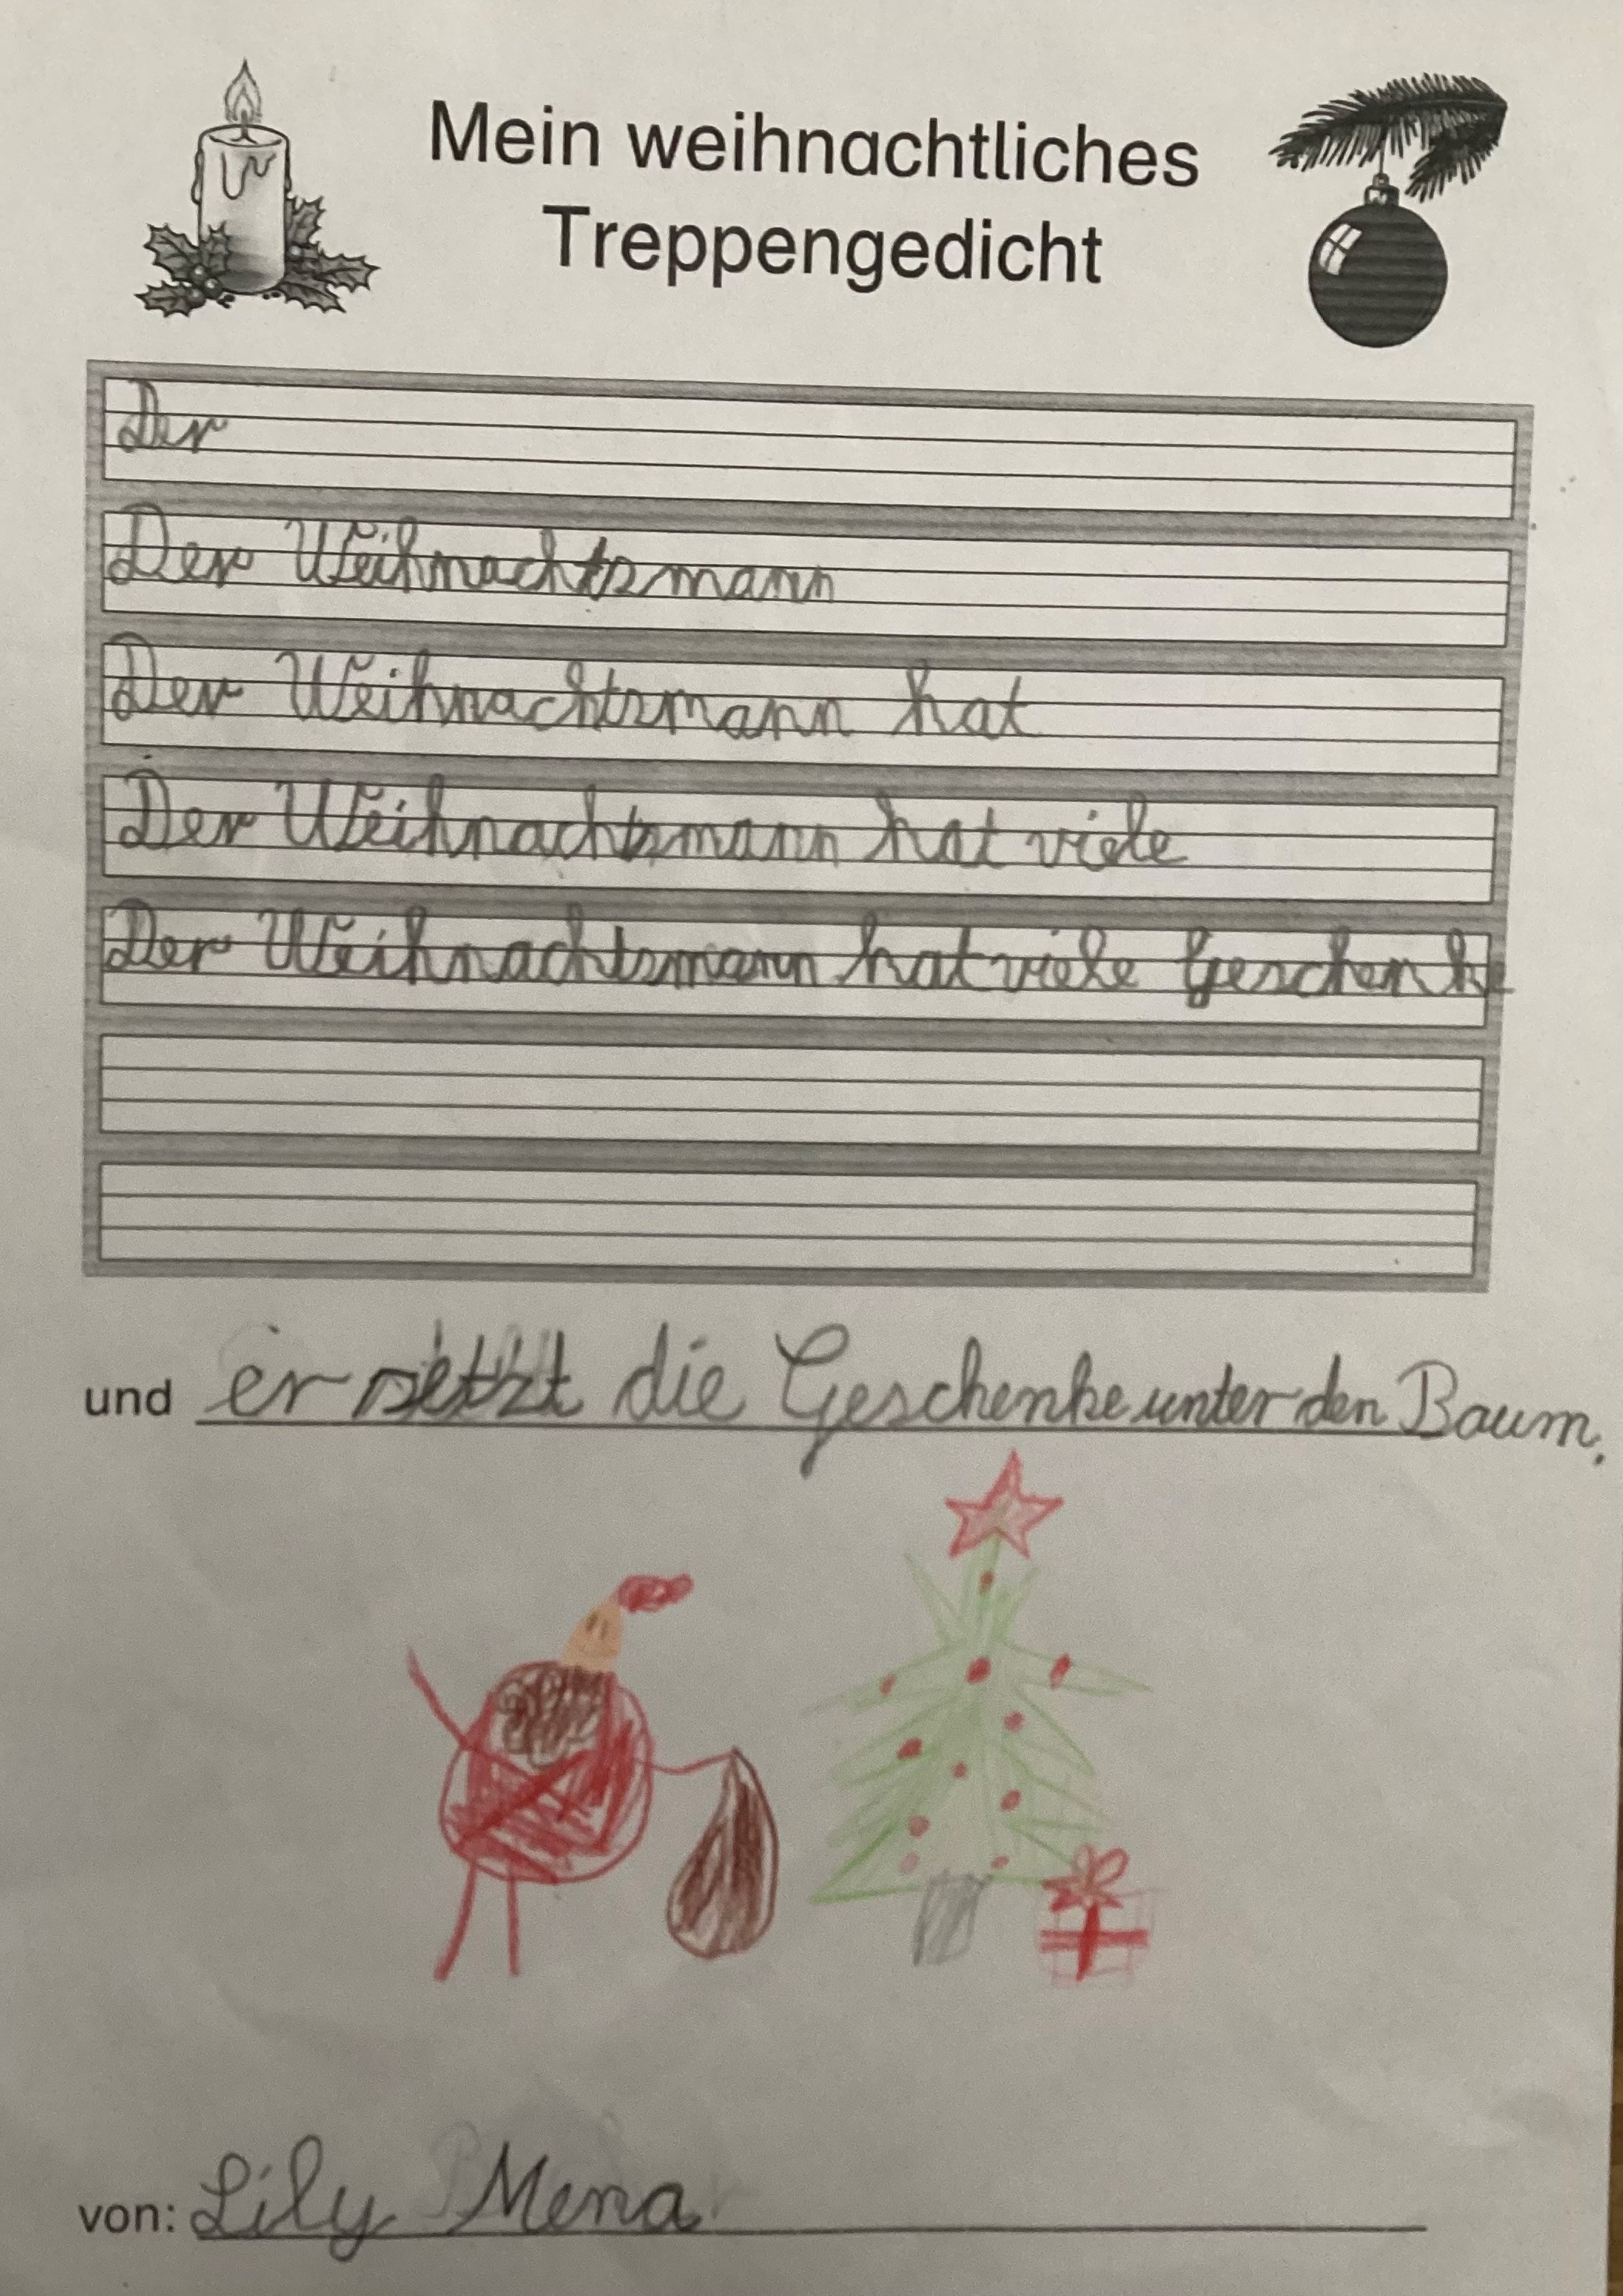 Mein weihnachtliches
Treppengedicht
Der
Der Weihnachtsmann
Der Weihnachtsmann hat
Der Weihnachtsmann hat viele
Der Weihnachtsmann hat viele Geschenke
und er setzt die Geschenke unter den Baum.
von: Lily Mena